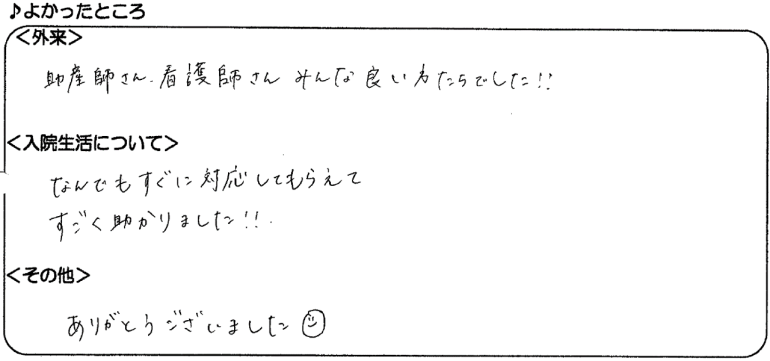 ♪よかったところ
<外来>
助産師さん、看護師さん みんな良い方たちでした!!
<入院生活について>
なんでもすぐに対応してもらえて
すごく助かりました!!
<その他>
ありがとうございました